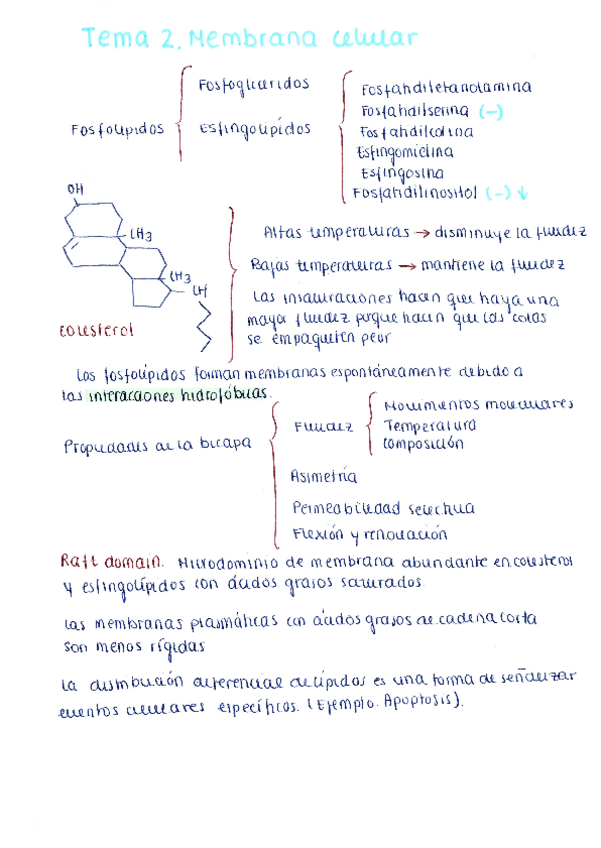 Tema 2. Membrana celular
Fosfolípidos
Fosfoglicéridos
Esfingolípidos
Fosfatidiletanolamina
Fosfatidilserina (-)
Fosfatidilcolina
Esfingomielina
Esfingosina
Fosfatidilinositol (-) ↓
OH
CH3
CH3
CH
colesterol
Altas temperaturas → disminuye la fluidez
Bajas temperaturas → mantiene la fluidez
Las insaturaciones hacen que haya una
mayor fluidez porque hacen que las colas
se empaqueten peor
Los fosfolípidos forman membranas espontáneamente debido a
las interacciones hidrofóbicas.
Propiedades de la bicapa
Fluidez
Movimientos moleculares
Temperatura
Composición
Asimetría
Permeabilidad selectiva
Flexión y renovación
Raft domain. Microdominio de membrana abundante en colesterol
y esfingolípidos con ácidos grasos saturados.
Las membranas plasmáticas con ácidos grasos de cadena corta
son menos rígidas
La distribución diferencial de lípidos es una forma de señalizar
eventos celulares específicos. (Ejemplo. Apoptosis).